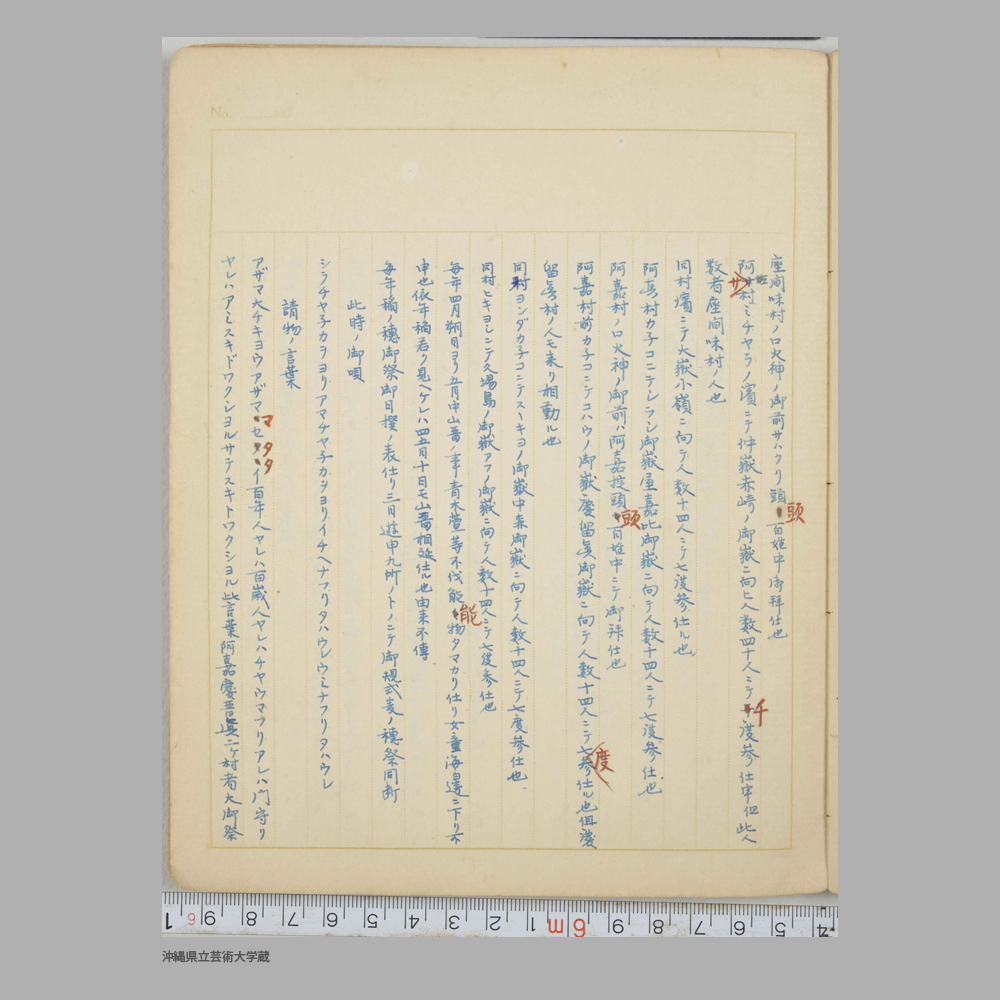 座間味村ノロ火神ノ御前サハクリ頭頭百姓中御拝仕也
阿サ村ミチヤラノ濱ニテ仲嶽赤崎ノ御嶽ニ向ヒ人数四十人ニテ千渡參仕申但此人
数者座間味村ノ人也
同村濱ニテ大嶽小嶺ニ向テ人数十四人ニテ七渡參仕ル也
阿真村カ子コニテレラン御嶽屋嘉比御嶽ニ向テ人数十四人ニテ七渡參仕ル
阿嘉村ノロ火神ノ御前ハ阿嘉掟頭頭百姓中ニテ御拝仕也
阿嘉村前カ子コニテコハウノ御嶽慶留真御嶽ニ向テ人数十四人ニテ七度參仕ル也但慶
留真村ノ人モ来リ相動ル也
同村ヨンダカ子コニテスーキヨノ御嶽中森御嶽ニ向テ人数十四人ニテ七度參仕也
同村ヒキヨシニテ久場島ノ御嶽アフノ御嶽ニ向テ人数十四人ニテ七渡參仕也
毎年四月朔日ヨリ五月中山留ノ事青木萱等不伐能能物タマカリ仕リ女童海邊ニ下リ不
申也依年稲若ク見ヘケレハ四五月十日モ山留相延仕ル也由来不傳
毎年稲ノ穗御祭御日撰ノ表仕リ三日遊申九所ノトノニテ御規式麦ノ穗祭同断
此時ノ御唄
シラチヤ子カヲヨリアマチヤ子カヲヨリイチヘナフリタハウレウミナフリタハウレ
請物ノ言葉
アザマ大チキヨウアザママセタタイ百年人ヤレハ百歳人ヤレハチヤウマフリアレハ門守リ
ヤレハアミスキドワクシヨルサテスキトワクシヨル此言葉阿嘉慶留真二ケ村者大御祭
No.
沖縄県立芸術大学蔵